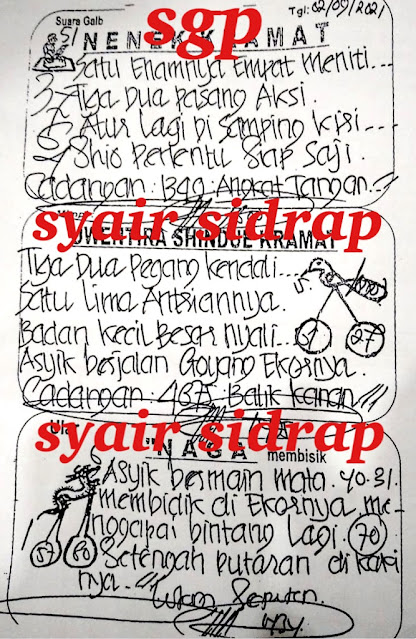 Suara Gaib
Tgl: 02/09/2021
51
NENEK KRAMAT
sgp
Satu Enamnya Empat meniti...
Tiga Dua pasang Aksi.
Atur Lagi Di Samping Kiri...
Shio Pertentu Siap Saji.
Cadangan: 1349: Angkat Tangan.
syair sidrap
SHINDUL KRAMAT
Tiga Dua Pegang kendali...
Satu Lima Antriannya.
Badan kecil Besar nyali...
Asyik berjalan Goyang Ekornya.
51 27
Cadangan: 4875 Balik kanan
syair sidrap
Ular
"NAGA" membisik
Asyik bermain mata. 40.31.
membidik di Ekornya me-
nggapai bintang Lagi. 70
57 60
Setengah putaran di kaki
nya.